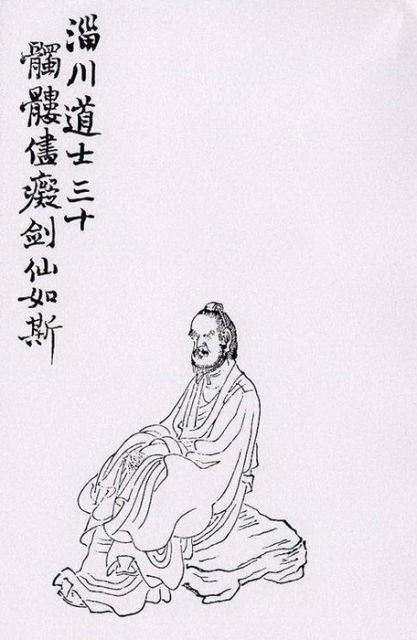 淄川道士三十
髑髏儘癡剑仙如斯